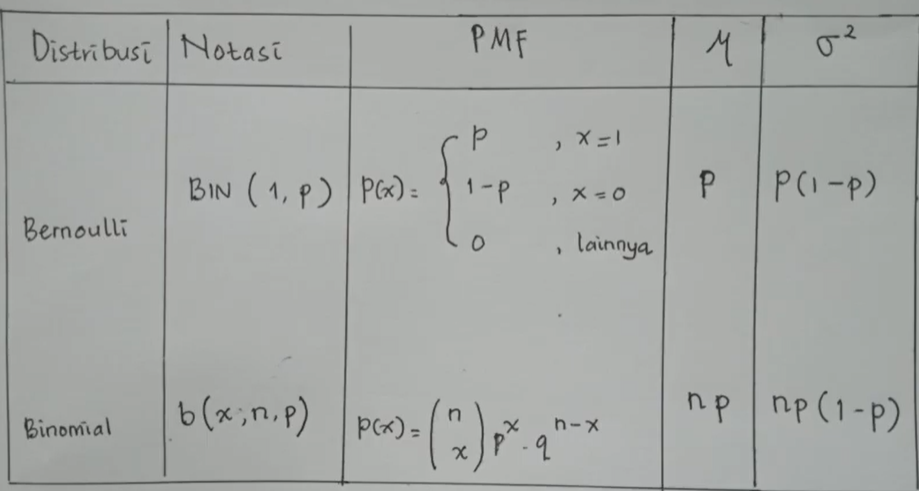 Distribusi Notasi PMF μ σ²
Bernoulli BIN (1, p) p(x) = { p , x=1
1-p , x=0
0 , lainnya
p p(1-p)
Binomial b(x;n,p) p(x) = (n x) p^x · q^(n-x) np np(1-p)